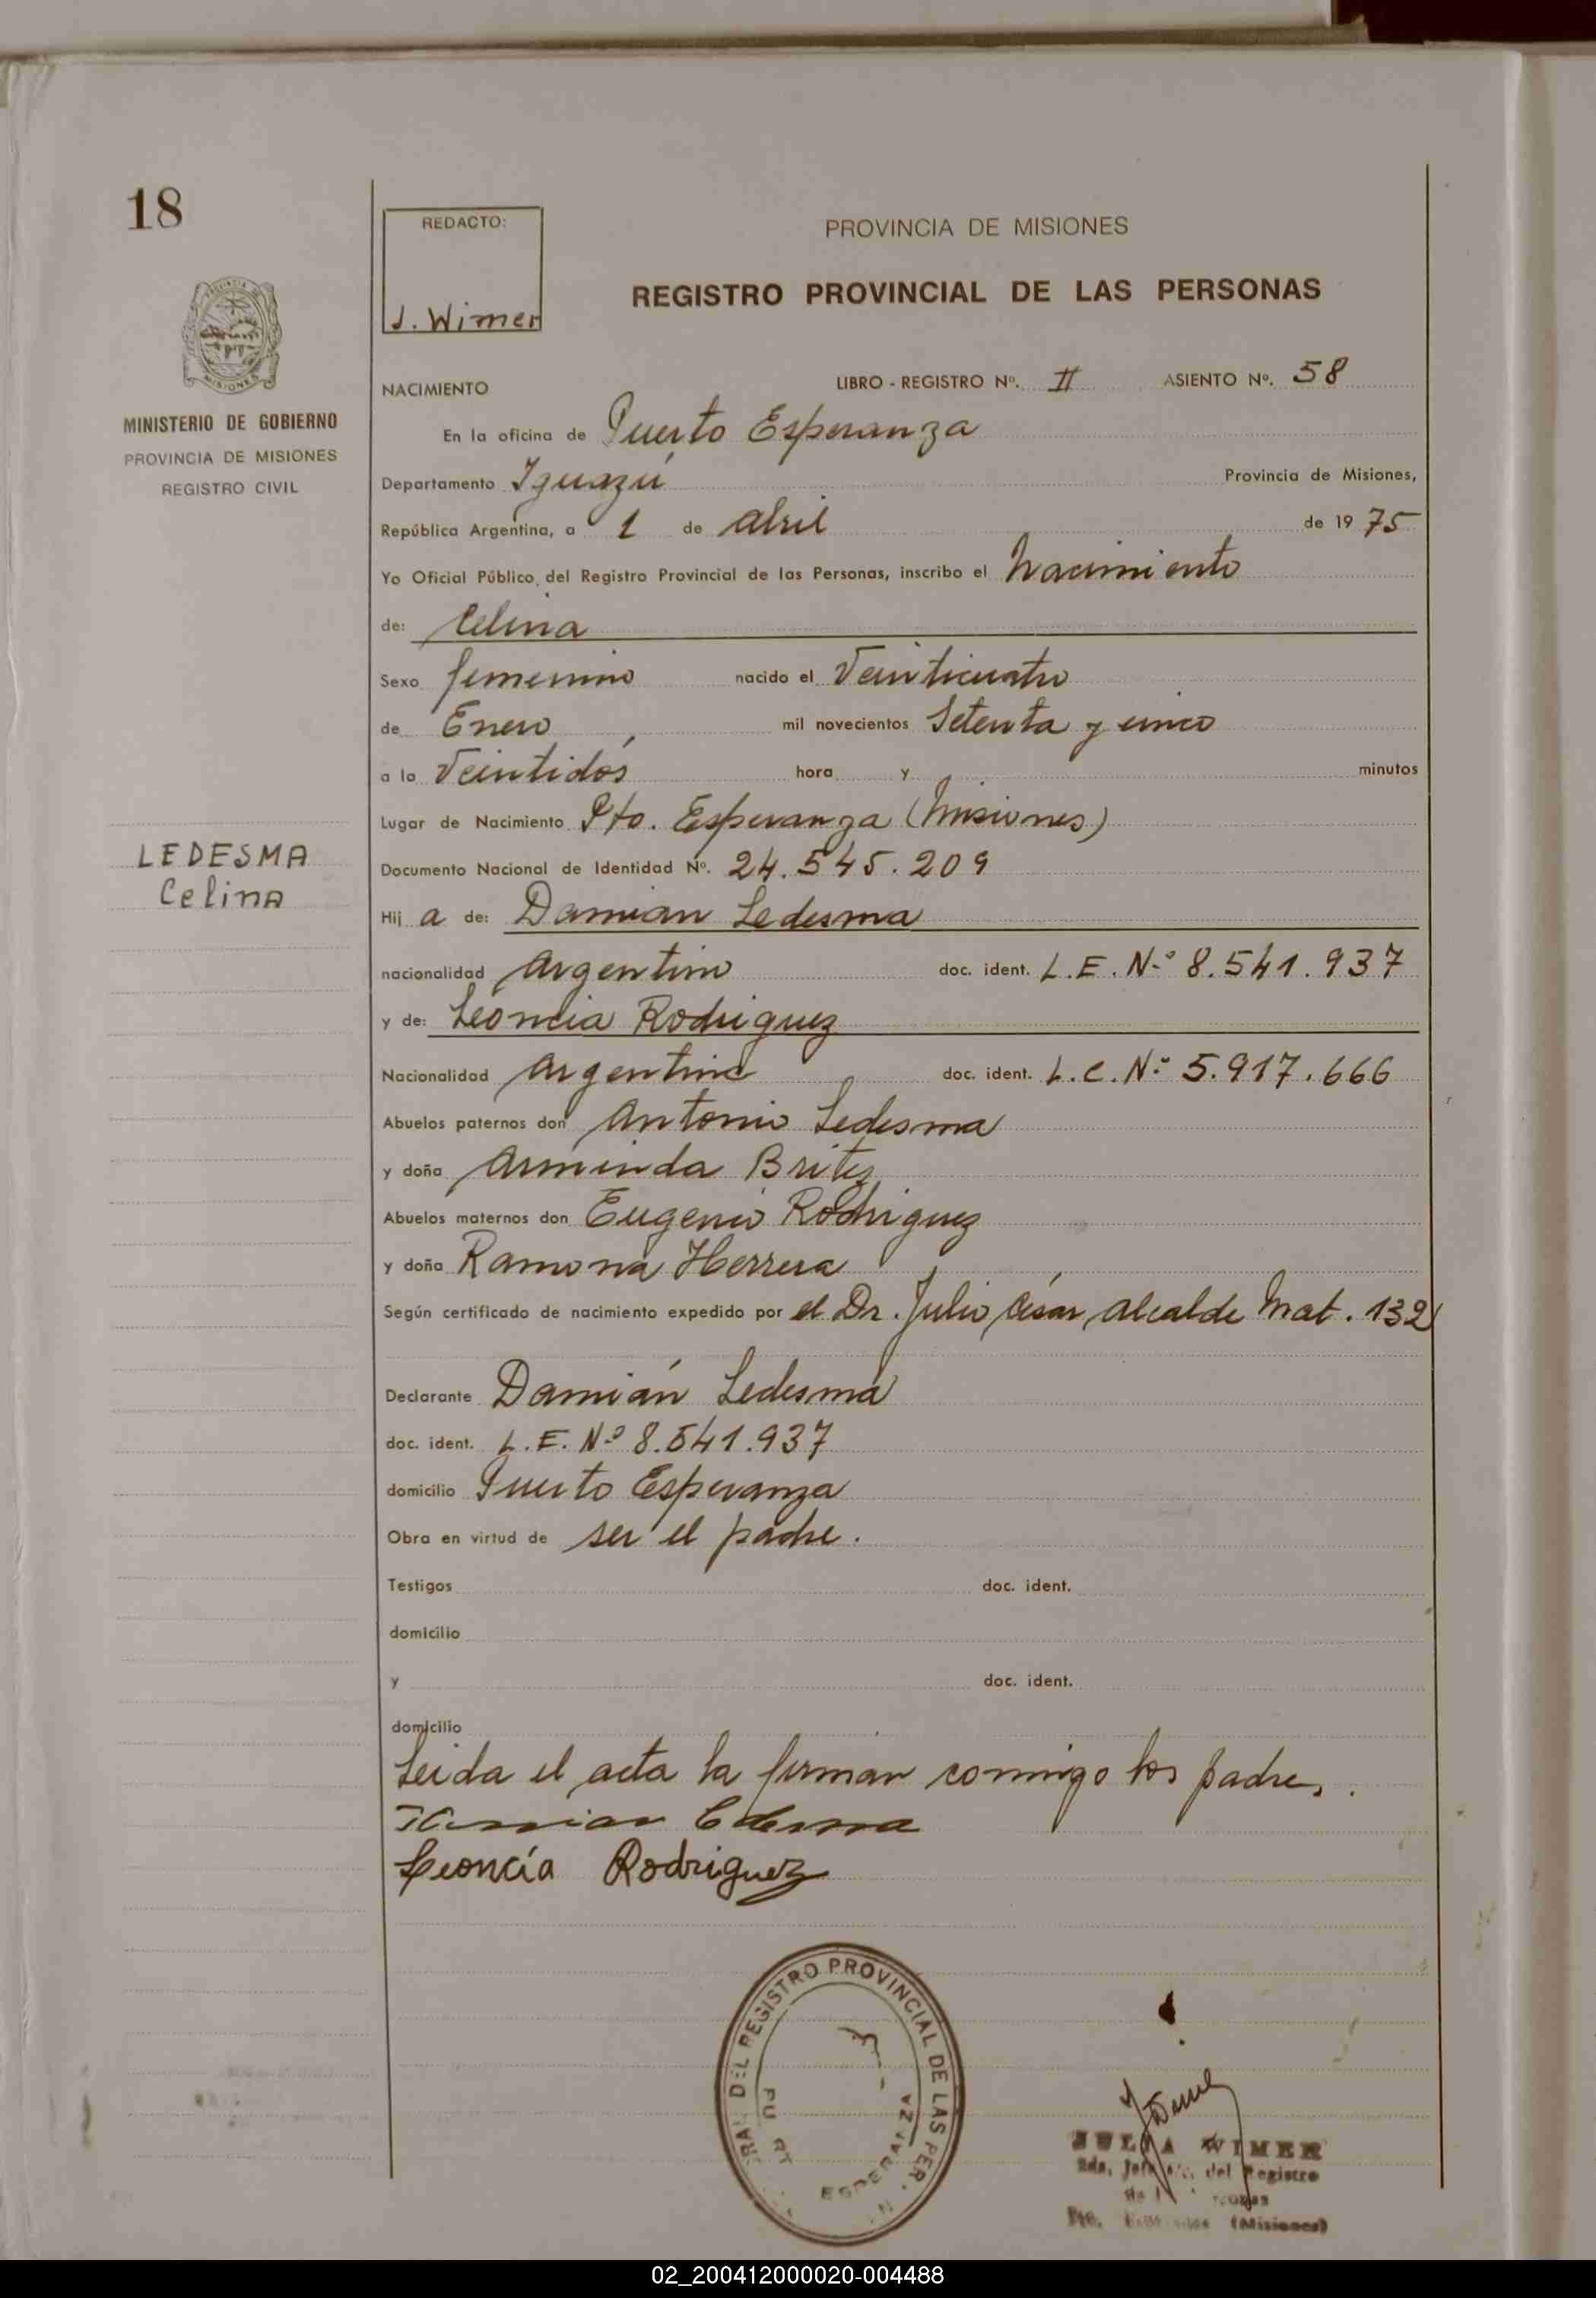 18
REDACTO:
J. Wimer
PROVINCIA DE MISIONES
REGISTRO PROVINCIAL DE LAS PERSONAS
MINISTERIO DE GOBIERNO
PROVINCIA DE MISIONES
REGISTRO CIVIL
NACIMIENTO LIBRO - REGISTRO Nº. II ASIENTO Nº. 58
En la oficina de Puerto Esperanza
Departamento Iguazú Provincia de Misiones,
República Argentina, a 1 de abril de 1975
Yo Oficial Público del Registro Provincial de las Personas, inscribo el Nacimiento
de: Celina
Sexo femenino nacido el Veinticuatro
de Enero mil novecientos Setenta y cinco
a la Veintidós hora y minutos
Lugar de Nacimiento Pto. Esperanza (Misiones)
LEDESMA
Celina
Documento Nacional de Identidad Nº. 24.545.209
Hij a de: Damian Ledesma
nacionalidad Argentino doc. ident. L.E. Nº 8.541.937
y de: Leoncia Rodriguez
Nacionalidad Argentina doc. ident. L.C. Nº 5.917.666
Abuelos paternos don Antonio Ledesma
y doña Arminda Britez
Abuelos maternos don Eugenio Rodriguez
y doña Ramona Herrera
Según certificado de nacimiento expedido por el Dr. Julio César Alcalde Mat. 132
Declarante Damián Ledesma
doc. ident. L.E. Nº 8.541.937
domicilio Puerto Esperanza
Obra en virtud de ser el padre.
Testigos doc. ident.
domicilio
y doc. ident.
domicilio
Leida el acta la firman conmigo los padres.
Ledesma
Leoncía Rodriguez
DEL REGISTRO PROVINCIAL DE LAS PER
ESPERANZA
JULIA WIMER
del Registro
(Misiones)
02_200412000020-004488